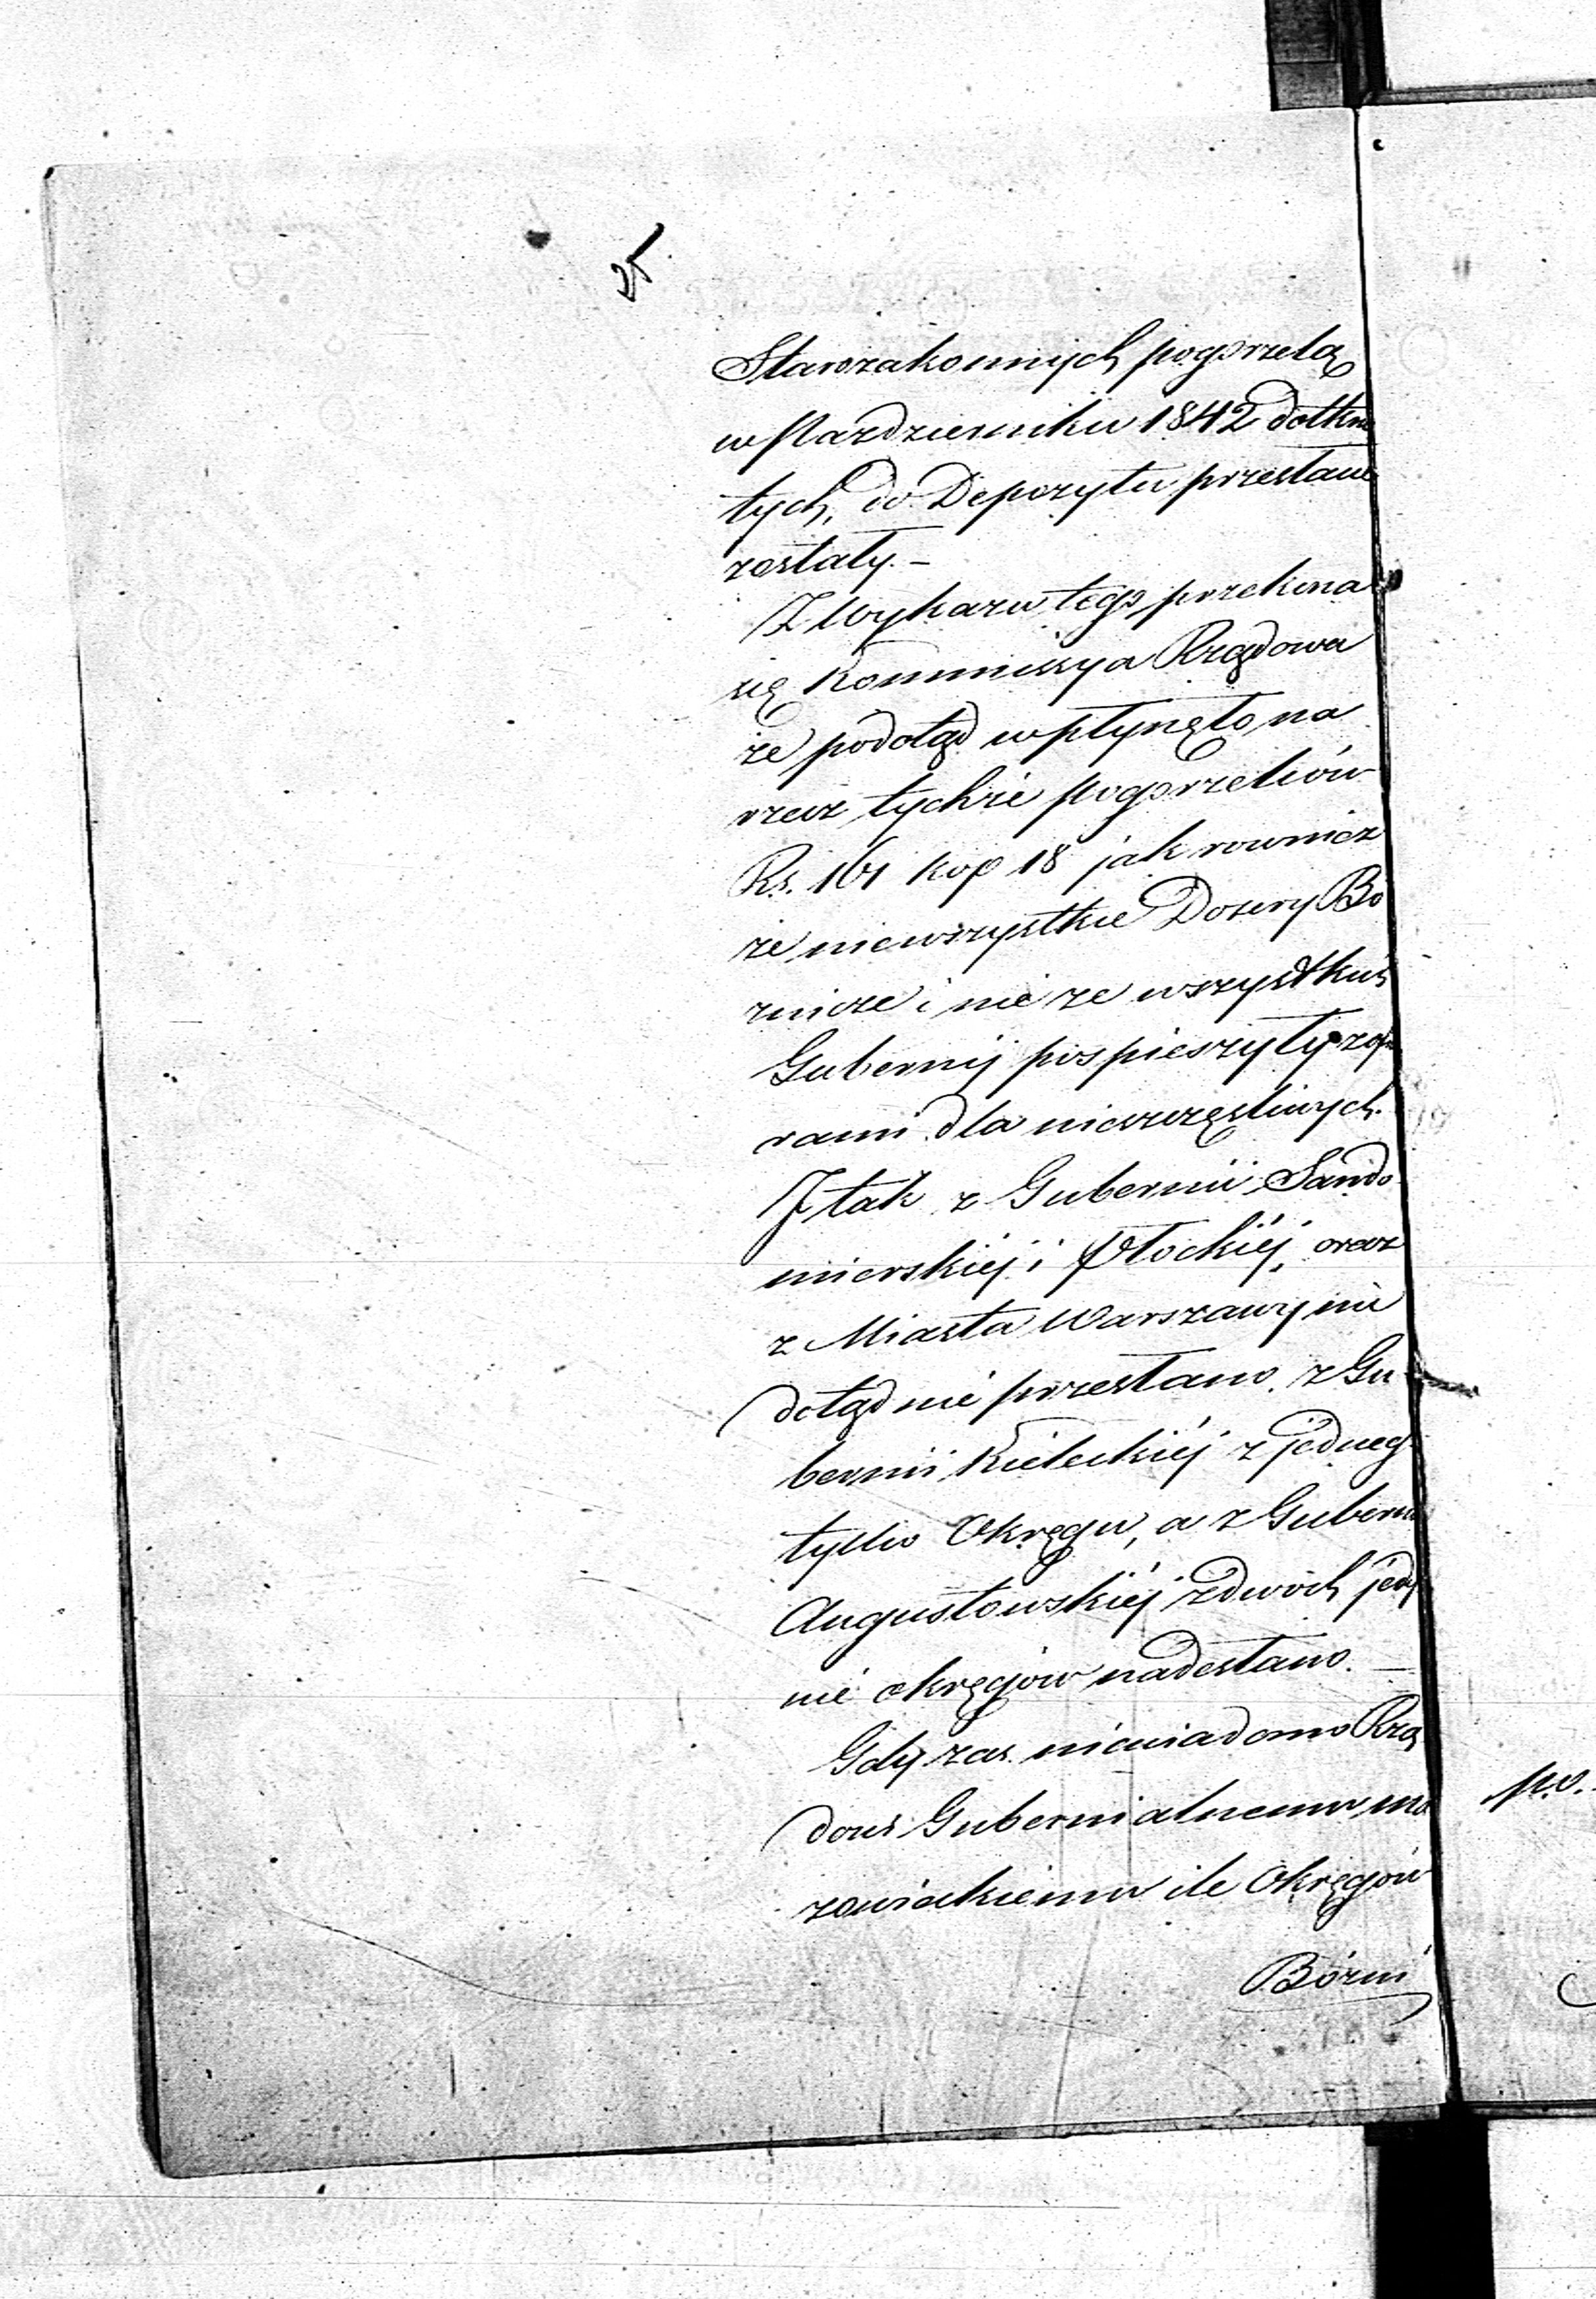 Starozakonnych pogorzelą
w Pazdzierniku 1842 dotkn
tych, do Depozytu przesłane
zostały. –
Z Wykazu tego przekona
się Kommissya Rządowa
że podotąd wpłynęło na
rzecz tychże pogorzelców
Rs. 161 kop 18 jak rownież
że niewszystkie Dozory Bo
znicze i nie ze wszystkich
Gubernij pospieszyły z ofia
rami dla nieszczęśliwych.
I tak z Gubernii Sando
mierskiéj i Płockiéj, oraz
z Miasta Warszawy nic
dotąd nie przesłano, z Gu
bernii Kieleckiéj z jedneg
tylko Okręgu, a z Guberni
Augustowskiéj z dwóch jedy
nie okręgów nadesłano. –
Gdy zaś niewiadomo Rzą
dowi Gubernialnemu Ma
zowieckiemu ile Okręgów
Bóżni
p.o.